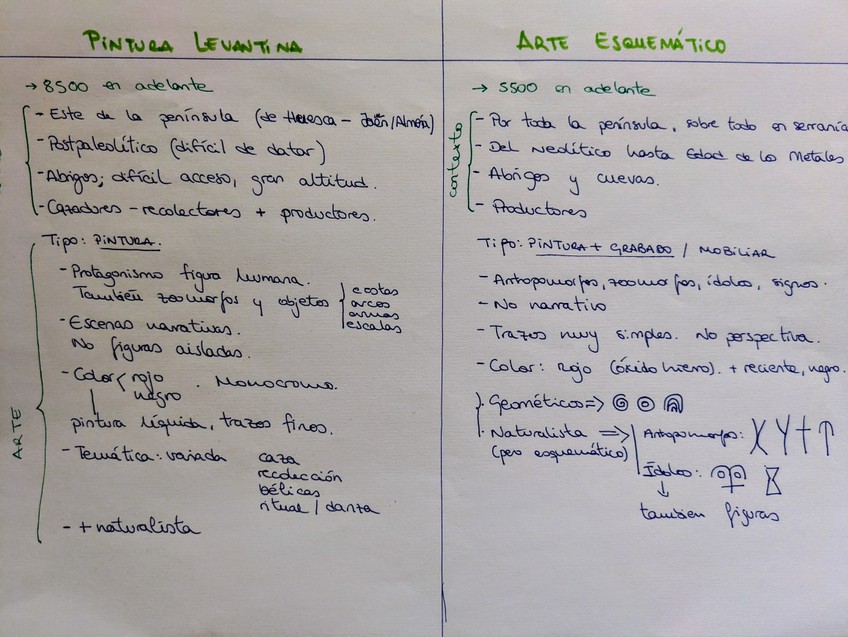 PINTURA LEVANTINA
→ 8500 en adelante
- Este de la península (de Huesca - Jaén/Almería)
- Postpaleolítico (difícil de datar)
- Abrigos; difícil acceso, gran altitud.
- Cazadores - recolectores + productores.
ARTE
Tipo: PINTURA.
- Protagonismo figura humana.
También zoomorfos y objetos
cestas
arcos
armas
escalas
- Escenas narrativas.
No figuras aisladas.
- Color rojo . Monocromo.
negro
pintura líquida, trazos finos.
- Temática: variada caza
recolección
bélicas
ritual / danza
- + naturalista
ARTE ESQUEMÁTICO
→ 5500 en adelante
contexto
- Por toda la península, sobre todo en serranía
- Del Neolítico hasta Edad de los Metales
- Abrigos y cuevas.
- Productores
Tipo: PINTURA + GRABADO / MOBILIAR
- Antropomorfos, zoomorfos, ídolos, signos.
- No narrativo
- Trazos muy simples. No perspectiva.
- Color: rojo (óxido hierro). + reciente, negro.
· Geométicos =>
· Naturalista => Antopomorfos:
(pero esquemático) Ídolos:
↓
tambien figuras